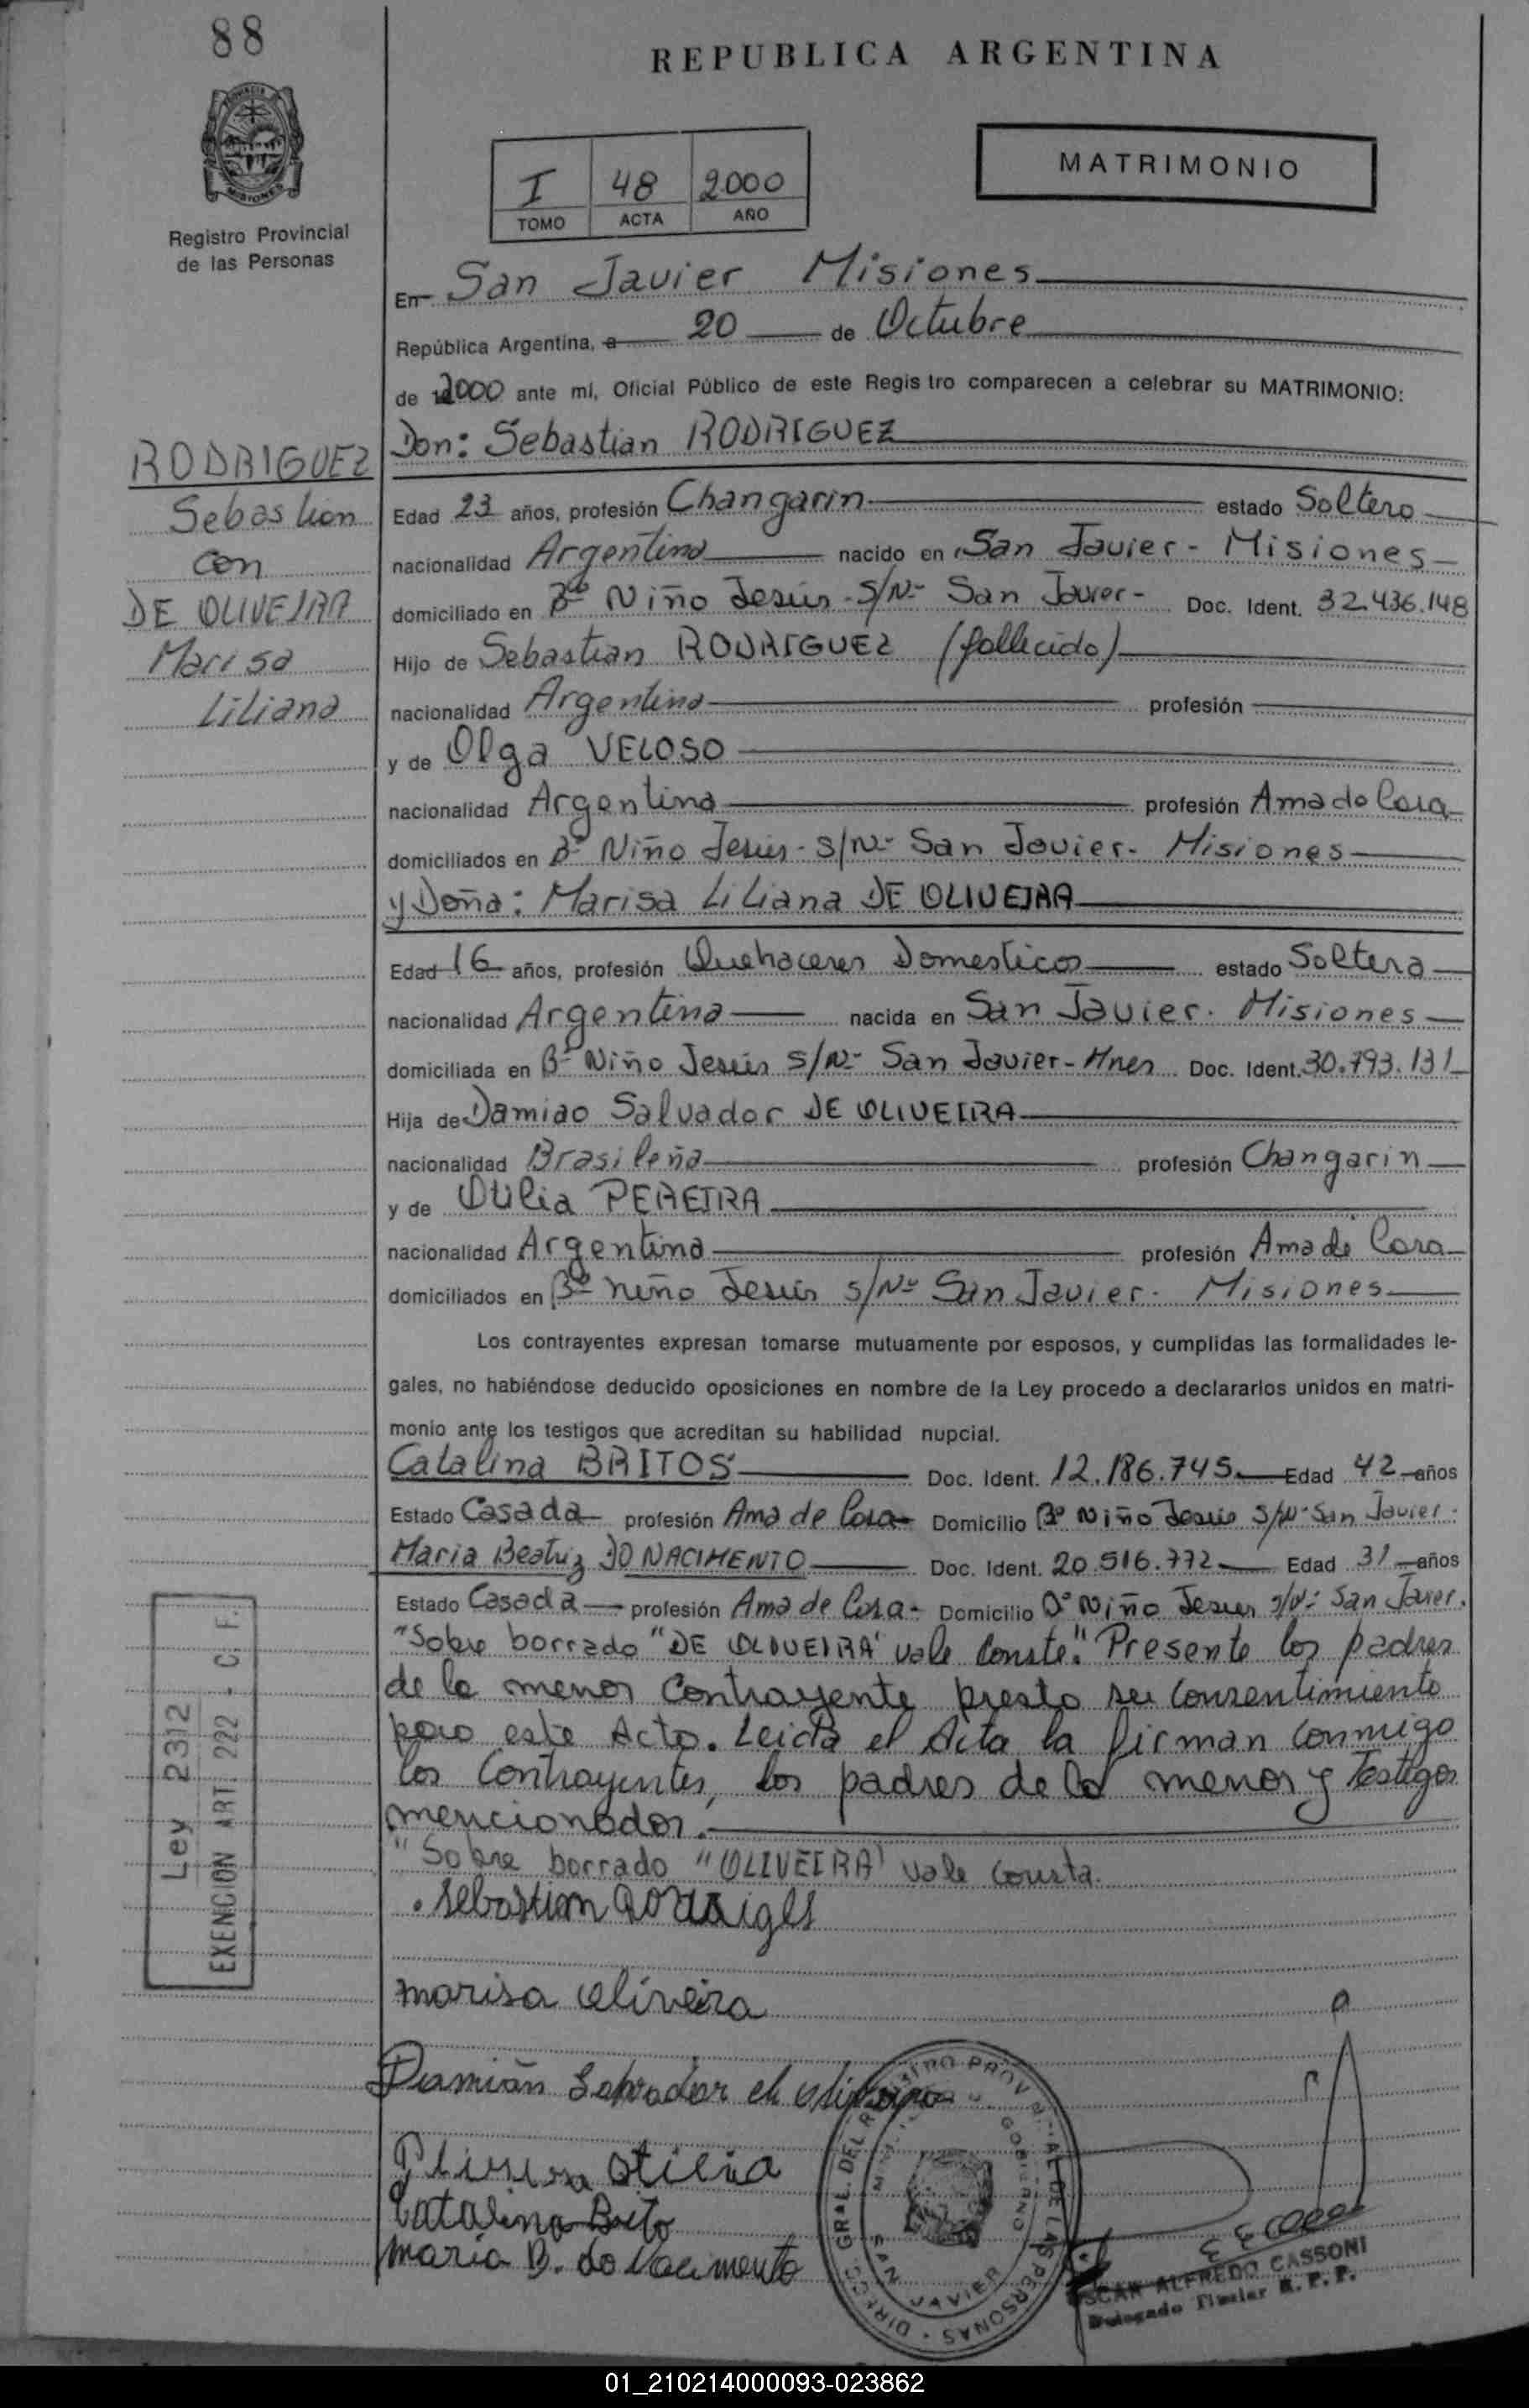 88
REPUBLICA ARGENTINA
PROVINCIA
MISIONES
Registro Provincial
de las Personas
I 48 2000
TOMO ACTA AÑO
MATRIMONIO
En San Javier Misiones
República Argentina, a 20 de Octubre
de 2000 ante mí, Oficial Público de este Regis tro comparecen a celebrar su MATRIMONIO:
RODRIGUEZ
Sebastian
con
DE OLIVEIRA
Marisa
Liliana
Don: Sebastian RODRIGUEZ
Edad 23 años, profesión Changarin estado Soltero
nacionalidad Argentina nacido en San Javier - Misiones
domiciliado en Bº Niño Jesús - S/Nº San Javier - Doc. Ident. 32.436.148
Hijo de Sebastian RODRIGUEZ (fallecido)
nacionalidad Argentina profesión
y de Olga VELOSO
nacionalidad Argentina profesión Ama de Casa
domiciliados en Bº Niño Jesús - S/Nº San Javier - Misiones
y Doña: Marisa Liliana DE OLIVEIRA
Edad 16 años, profesión Quehaceres Domesticos estado Soltera
nacionalidad Argentina nacida en San Javier - Misiones
domiciliada en Bº Niño Jesús S/Nº San Javier - Mnes Doc. Ident. 30.793.131
Hija de Damiao Salvador DE OLIVEIRA
nacionalidad Brasileña profesión Changarin
y de Otilia PEREIRA
nacionalidad Argentina profesión Ama de Casa
domiciliados en Bº Niño Jesús S/Nº San Javier - Misiones
Los contrayentes expresan tomarse mutuamente por esposos, y cumplidas las formalidades le-
gales, no habiéndose deducido oposiciones en nombre de la Ley procedo a declararlos unidos en matri-
monio ante los testigos que acreditan su habilidad nupcial.
Catalina BRITOS Doc. Ident. 12.186.745 Edad 42 años
Estado Casada profesión Ama de Casa Domicilio Bº Niño Jesús S/Nº San Javier
Maria Beatriz DO NACIMENTO Doc. Ident. 20.516.772 Edad 31 años
Estado Casada profesión Ama de Casa Domicilio Bº Niño Jesus S/Nº San Javier.
"Sobre borrado "DE OLIVEIRA" vale Conste." Presente los padres
de la menor Contrayente presto su Consentimiento
para este Acto. Leida el Acta la firman conmigo
los Contrayentes, los padres de la menor y Testigos
mencionados.
"Sobre borrado "OLIVEIRA" vale Consta.
Ley 2312
EXENCION ART. 222 - C. F.
Sebastian
marisa oliveira
Damián Salvador
Otilia
Catalina Brito
maria B. do Nacimento
DIREC. GRAL. DEL REGISTRO PROVINCIAL DE LAS PERSONAS
SAN JAVIER
OSCAR ALFREDO CASSONI
Delegado Titular R. P. P.
01_210214000093-023862